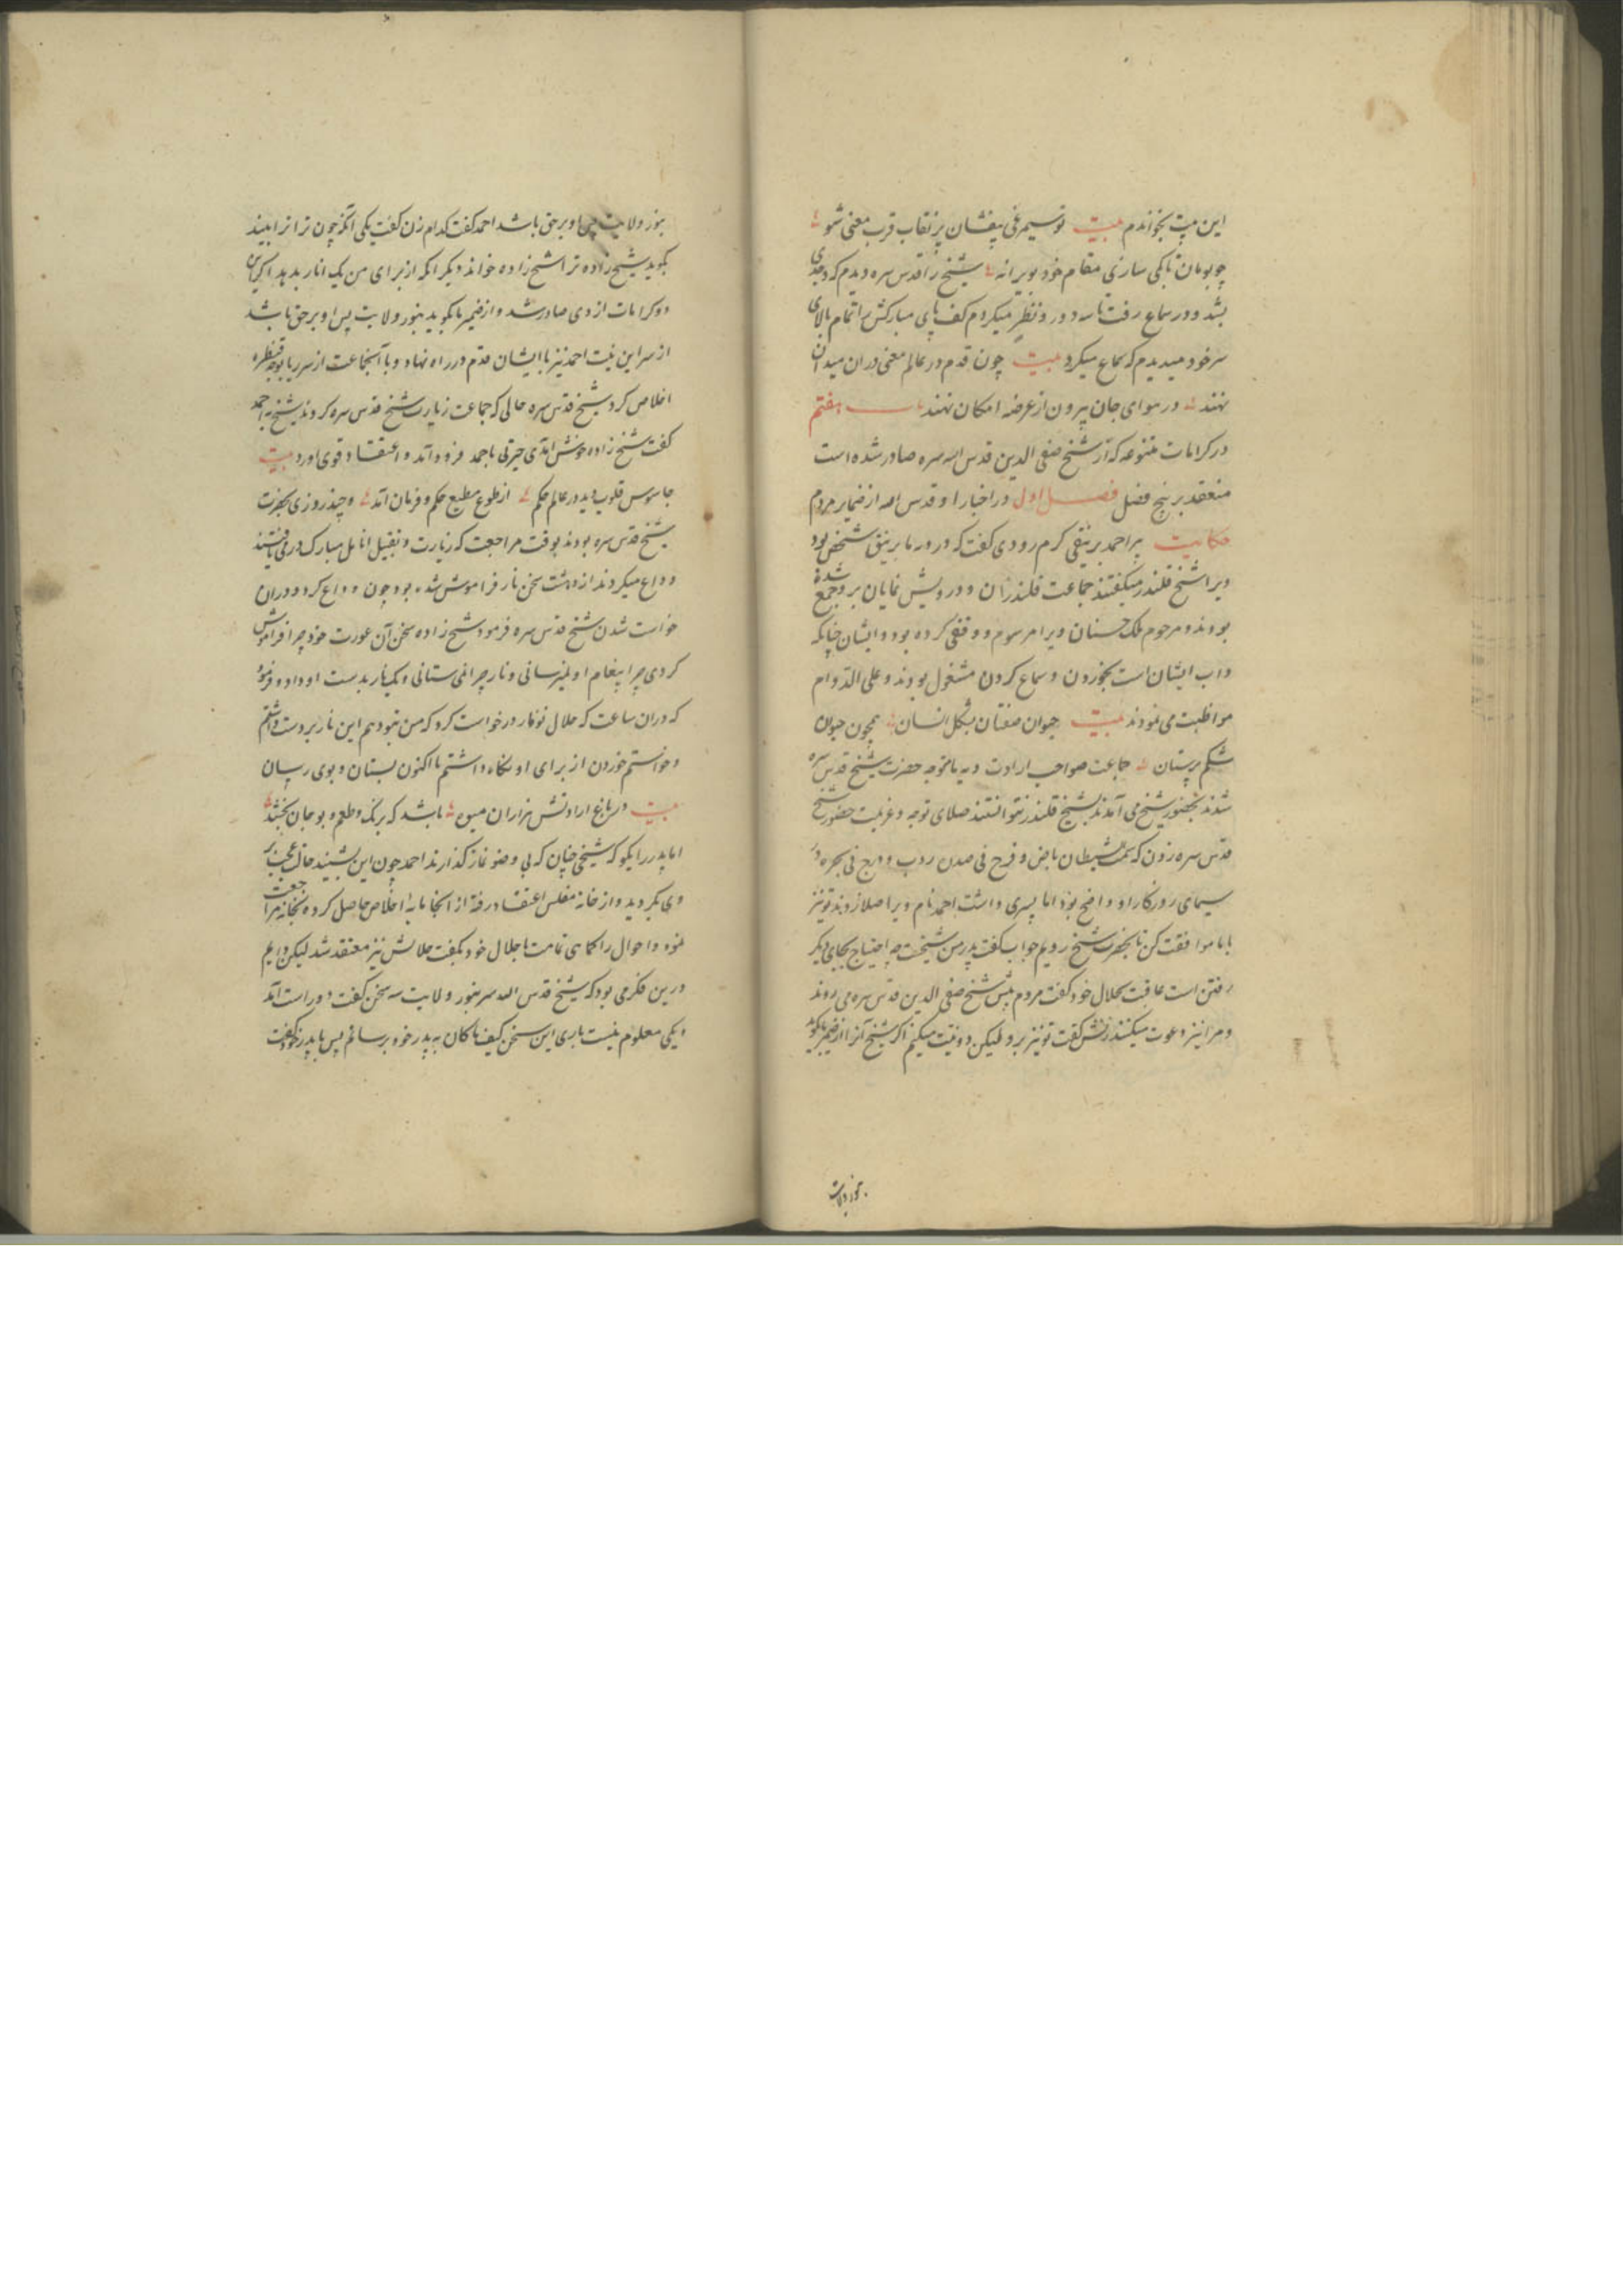 این بیت بخواندم بیت تو سیمرغی بیفشان پر نقاب قرب معنی شو
چو بومان تا بکی سازی مقام خود بویرانه شیخ را قدس سره دیدم که وجدی
بشد و در سماع رفت تا سه دور و نظر میکردم کف پای مبارکش را تمام بالای
سر خود میدیدم که سماع میکرد بیت چون قدم در عالم معنی دران میدان
نهند در هوای جان بیرون از عرضه امکان نهند باب هفتم
در کرامات متنوعه که از شیخ صفی الدین قدس الله سره صادر شده است
منعقد بر پنج فصل فصل اول در اخبار او قدس الله از ضمایر مردم
حکایت پیر احمد برنیقی کرم رودی گفت که در ورما برنیق شخصی بود
ویرا شیخ قلندر میگفتند جماعت قلندران و درویش نمایان برو جمع شده
بودند و مرحوم ملک حسنان ویرا مرسوم و وقفی کرده بود و ایشان چنانکه
داب ایشان است بخوردن و سماع کردن مشغول بودند و علی الدوام
مواظبت می نمودند بیت حیوان صفتان بشکل انسان همچون حیوان
شکم پرستان جماعت صواحب ارادت دیه ما متوجه حضرت شیخ قدس سره
شدند بحضور شیخ می آمدند بشیخ قلندر نتوانستند صلای توجه و عزیمت حضور شیخ
قدس سره زدن که سمت شیطان باض و فرخ فی صدره و دب و درج فی بحره در
سیمای روزکار او واضح بود اما پسری داشت احمد نام ویرا صلا زدند تو نیز
با ما موافقت کن تا بحضرت شیخ رویم جواب گفت پدر من شیخست چه احتیاج بجای دیگر
رفتن است عاقبت بحلال خود گفت مردم پیش شیخ صفی الدین قدس سره می روند
و مرا نیز دعوت میکنند زنش گفت تو نیز برو لیکن دو نیت میکنم اگر شیخ آنرا از ضمیر ما بگوید
بنور ولایت
بنور ولایت پس او برحق باشد احمد گفت کدام زن گفت یکی آنکه چون ترا ببیند
بگوید شیخ زاده ترا شیخ زاده خواند دیگر آنکه از برای من یک انار بدهد اگر این
دو کرامات از وی صادر شد و از ضمیر ما بگوید بنور ولایت پس او برحق باشد
از سر این نیت احمد نیز با ایشان قدم در راه نهاد و با آنجماعت از سر ریا بوجه قنطره
اخلاص کرد شیخ قدس سره حالی که جماعت زیارت شیخ قدس سره کردند شیخ به احمد
گفت شیخ زاده خوش آمدی حیرتی باحمد فرود آمد و اعتقاد قوی آورد بیت
جاسوس قلوب دید در عالم حکم از طلوع مطیع حکم و فرمان آمد و چند روزی بحضرت
شیخ قدس سره بودند بوقت مراجعت که زیارت و تقبیل انامل مبارک در می یافتند
و وداع میکردند از دهشت سخن نار فراموش شده بود چون وداع کرد و در آن
خواست شدن شیخ قدس سره فرمود شیخ زاده سخن آن عورت خود چرا فراموش
کردی چرا پیغام او نمیرسانی و نار چرا نمی ستانی و یک نار بدست او داد و فرمود
که در آن ساعت که حلال تو نار درخواست کرد که من تبو دهم این نار بر دست داشتم
و خواستم خوردن از برای او نگاه داشتم تا اکنون بستان و بوی رسان
بیت در باغ ارادتش هزاران میوه باشد که برنک و طعم و بو جان بخشد
اما پدر را بگو که شیخی چنان که بی وضو نماز گذارند احمد چون این بشنید حالی عجب بر
وی بگردید و از خانه مفلس اعتقاد رفته از آنجا مایه اخلاص حاصل کرده بخانه مراجعت
نمود و احوال را کماهی تمامت با حلال خود بگفت حلالش نیز معتقد شد لیکن دایم
درین فکر می بود که شیخ قدس الله سره بنور ولایت سه سخن گفت دو راست آمد
و یکی معلوم نیست باری این سخن کیف ما کان به پدر خود برسانم پس با پدر خود گفت